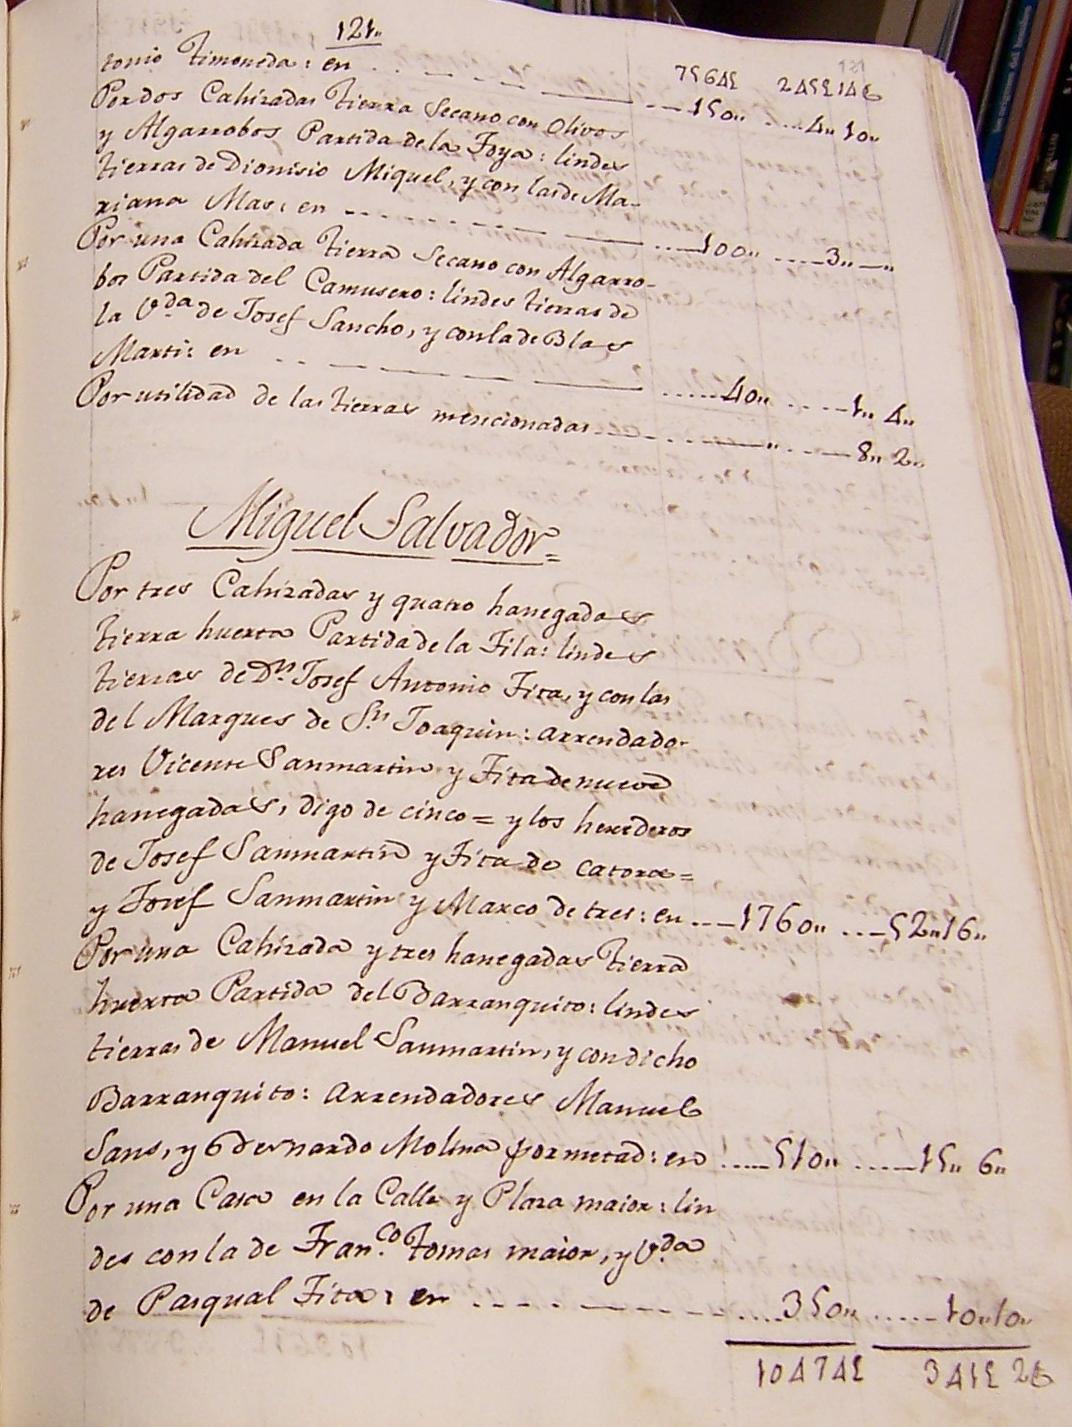 121„
tonio Timoneda: en 150„ 4„ 10„
Por dos Cahizadas Tierra Secano con Olivos
y Algarrobos Partida de la Foya: lindes
tierras de Dionisio Miquel, y con las de Ma-
riana Mas: en 100„ 3„ —„
Por una Cahizada Tierra Secano con Algarro-
bos Partida del Camusero: lindes tierras de
la V.da de Josef Sancho, y con la de Blas
Marti: en 40„ 1„ 4„
Por utilidad de las tierras mencionadas „ 8„ 2„
Miguel Salvador=
Por tres Cahizadas y quatro hanegadas
tierra huerta Partida de la Fila: lindes
tierras de Dn. Josef Antonio Fita, y con las
del Marques de Sn. Joaquin: arrendado-
res Vicente Sanmartin y Fita de nueve
hanegadas, digo de cinco= y los herederos
de Josef Sanmartin y Fita de catorce=
y Josef Sanmartin y Marco de tres: en 1760„ 52„16„
Por una Cahizada y tres hanegadas Tierra
huerta Partida del Barranquito: lindes
tierras de Manuel Sanmartin, y con dicho
Barranquito: arrendadores Manuel
Sans, y Bernardo Molina por metad: en 510„ 15„ 6„
Por una Casa en la Calle y Plaza maior: lin
des con la de Fran.co Tomas maior, y V.da
de Pasqual Fita: en 350„ 10„10„